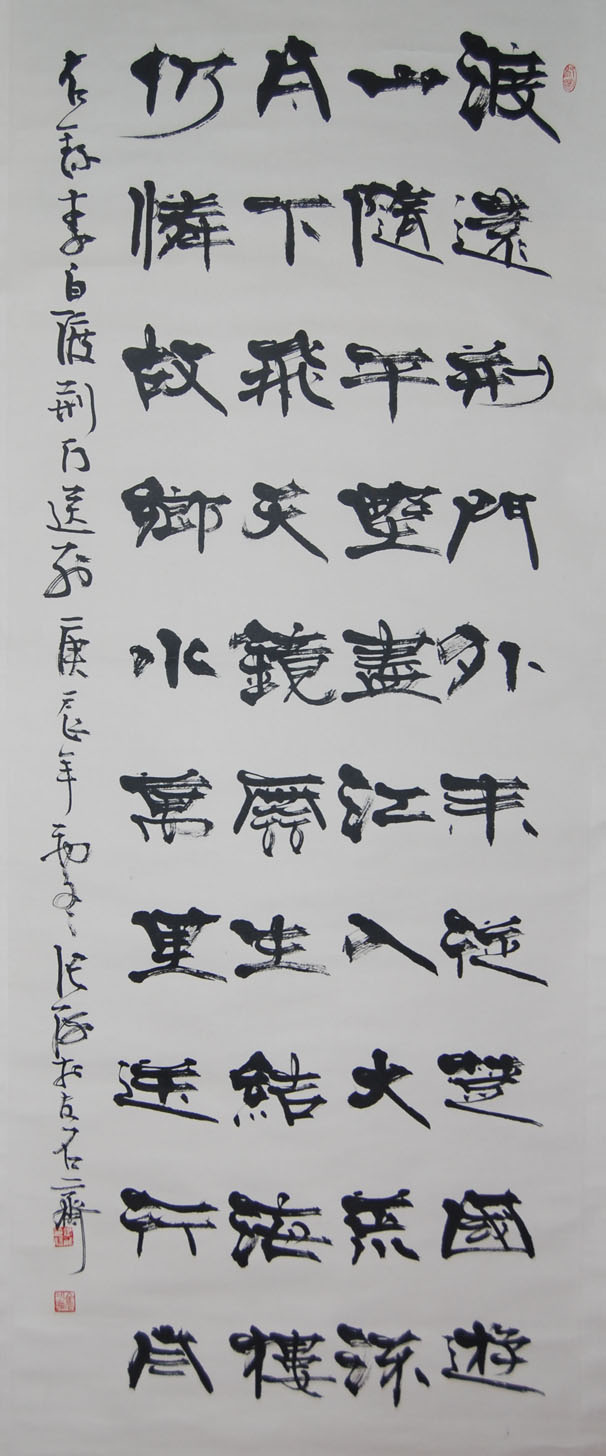 渡遠荊門外來從楚國遊
山隨平野盡江入大荒流
月下飛天鏡雲生結海樓
仍憐故鄉水萬里送行舟
右録李白渡荆门送别 庚辰年 张 於 石齋